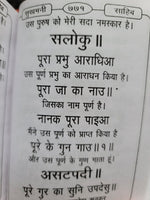 सुखमनी ७७१ साहिब
उस पुरुष को मेरी सदा नमस्कार है।
सलोकु॥
पूरा प्रभु आराधिआ
उस पूर्ण प्रभु का आराधन किया है।
पूरा जा का नाउ॥
जिसका नाम पूर्ण है।
नानक पूरा पाइआ
मैंने उस पूर्ण को प्राप्त किया है
पूरे के गुन गाउ॥१॥
और उस पूर्ण के गुण गाता हूं।
असटपदी॥
पूरे गुर का सुनि उपदेसु॥